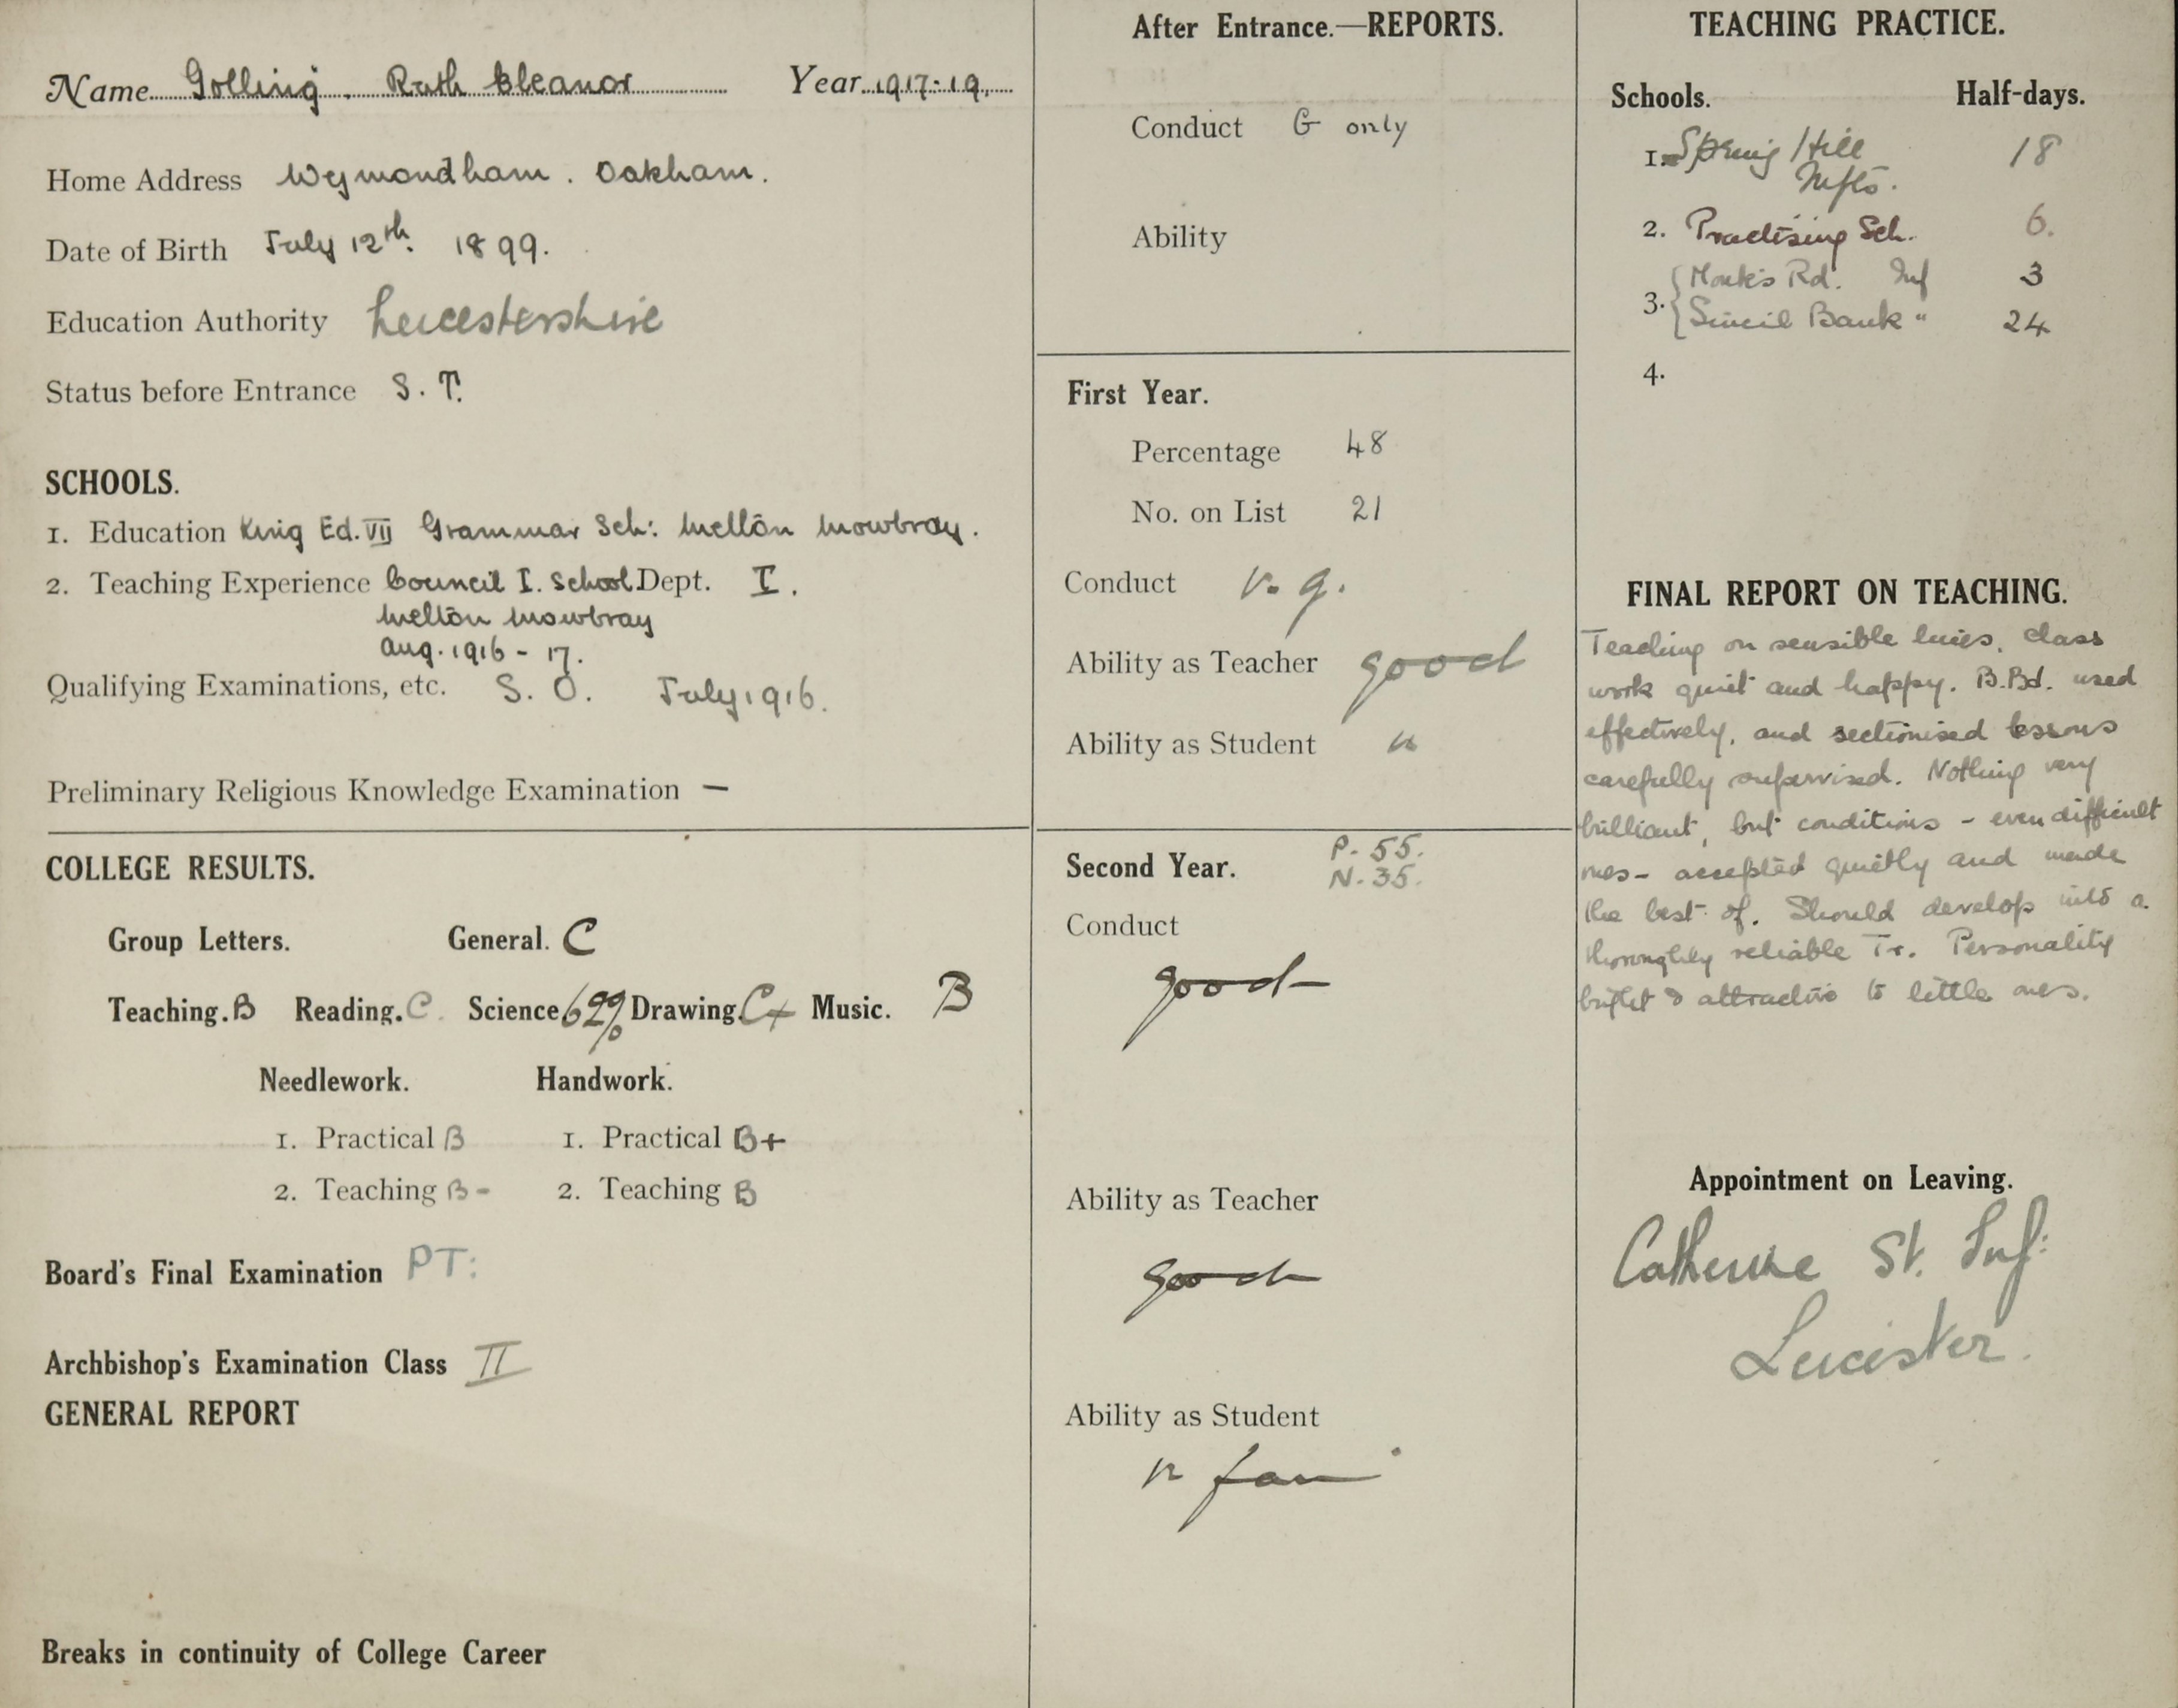 Name Golling. Ruth Eleanor Year 1917-19.
Home Address Wymondham. Oakham.
Date of Birth July 12th. 1899.
Education Authority Leicestershire
Status before Entrance S. T.
SCHOOLS.
1. Education King Ed. VII Grammar Sch: Melton Mowbray.
2. Teaching Experience Council I. School Dept. I.
Melton Mowbray
Aug. 1916 - 17.
Qualifying Examinations, etc. S. O. July 1916.
Preliminary Religious Knowledge Examination —
COLLEGE RESULTS.
Group Letters. General. C
Teaching. B Reading. C. Science 62% Drawing. C+ Music. B
Needlework. Handwork.
1. Practical B 1. Practical B+
2. Teaching B- 2. Teaching B
Board's Final Examination PT:
Archbishop's Examination Class II
GENERAL REPORT
Breaks in continuity of College Career
After Entrance.—REPORTS.
Conduct G only
Ability
First Year.
Percentage 48
No. on List 21
Conduct v. g.
Ability as Teacher good
Ability as Student "
Second Year. P. 55.
N. 35.
Conduct
good
Ability as Teacher
good
Ability as Student
v fair
TEACHING PRACTICE.
Schools. Half-days.
1. Spring Hill 18
Infts.
2. Practising Sch. 6.
3. Monks Rd. Inf 3
Sincil Bank " 24
4.
FINAL REPORT ON TEACHING.
Teaching on sensible lines, class
work quiet and happy. B.Bd. used
effectively, and sectionised lessons
carefully supervised. Nothing very
brilliant, but conditions - even difficult
ones - accepted quietly and made
the best of. Should develop into a
thoroughly reliable Tr. Personality
bright & attractive to little ones.
Appointment on Leaving.
Catherine St. Inf:
Leicester.